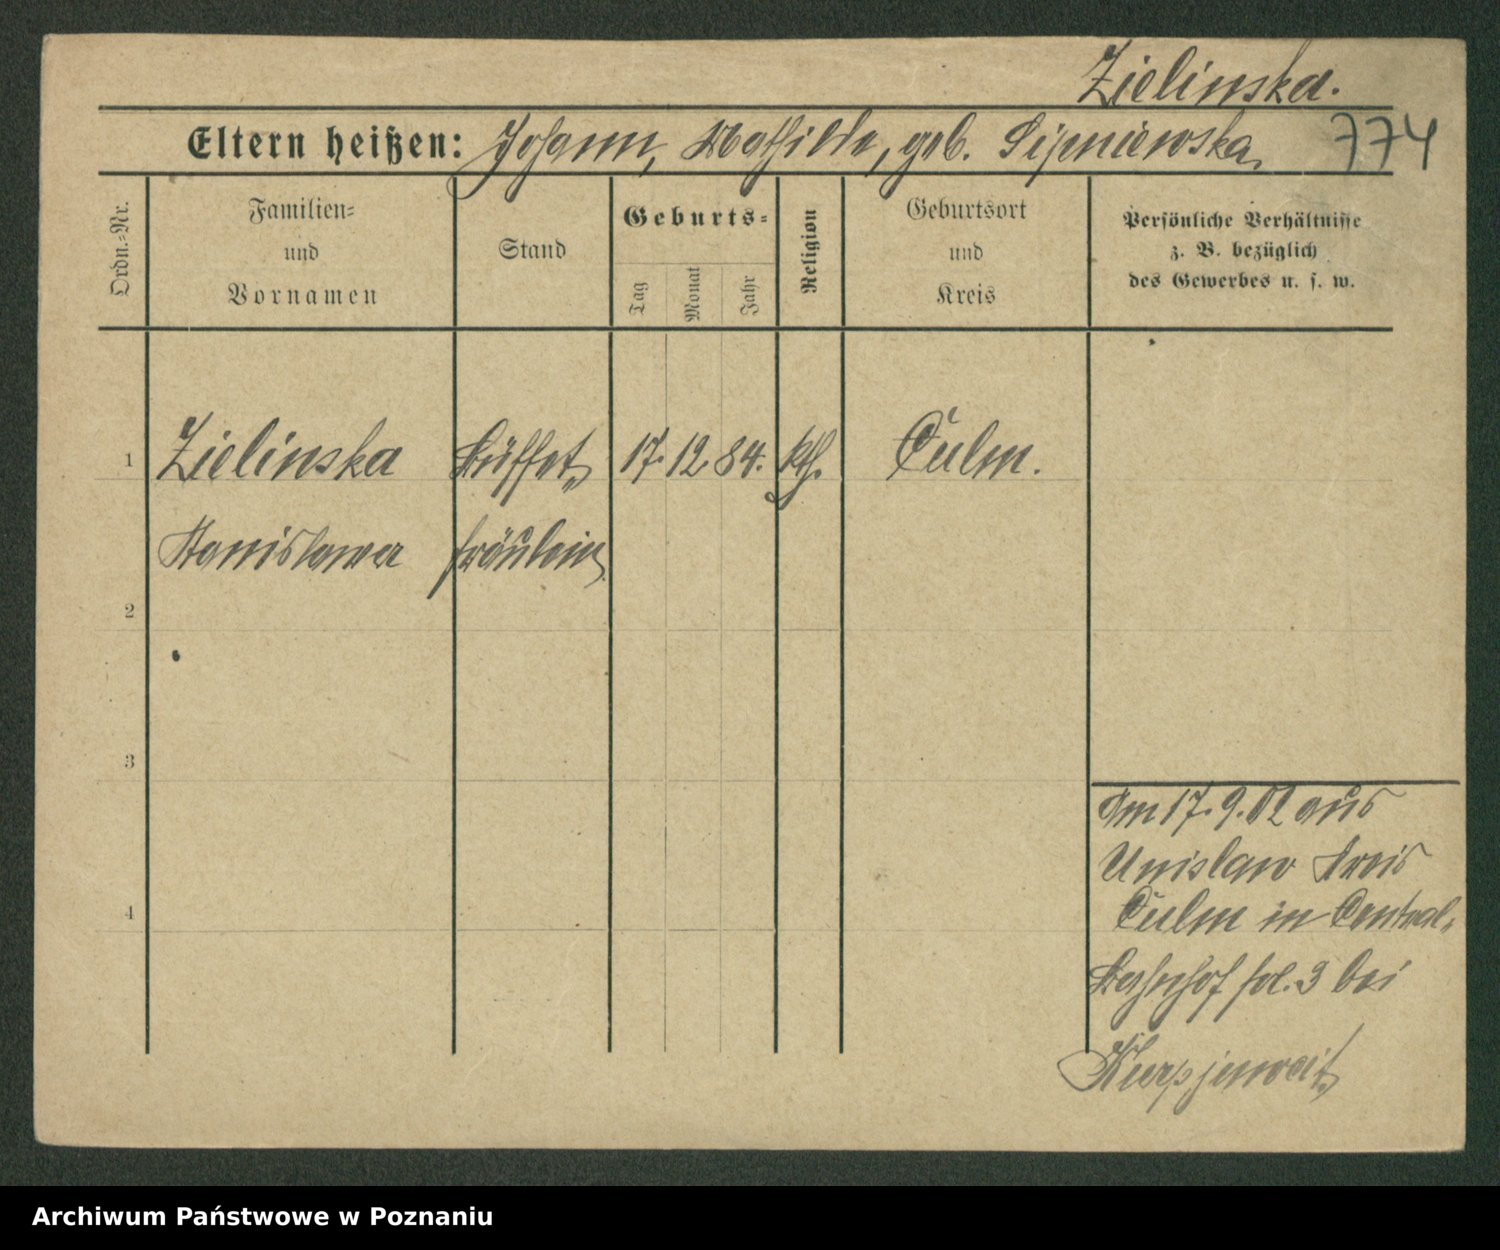 Zielinska.
Eltern heißen: Johann, Mathilde, geb. Lipniewska, 774
Ordn.-Nr.
Familien-
und
Vornamen
Stand
Geburts-
Tag
Monat
Jahr
Religion
Geburtsort
und
Kreis
Persönliche Verhältnisse
z. B. bezüglich
des Gewerbes u. s. w.
1 Zielinska Büffet 17. 12. 84. kth. Culm.
Stanislawa fräulein
2
3
4
Am 17. 9. 02 aus
Unislaw Kreis
Culm in Central-
Bahnhof fol. 3 bei
Kurpjeweit
Archiwum Państwowe w Poznaniu